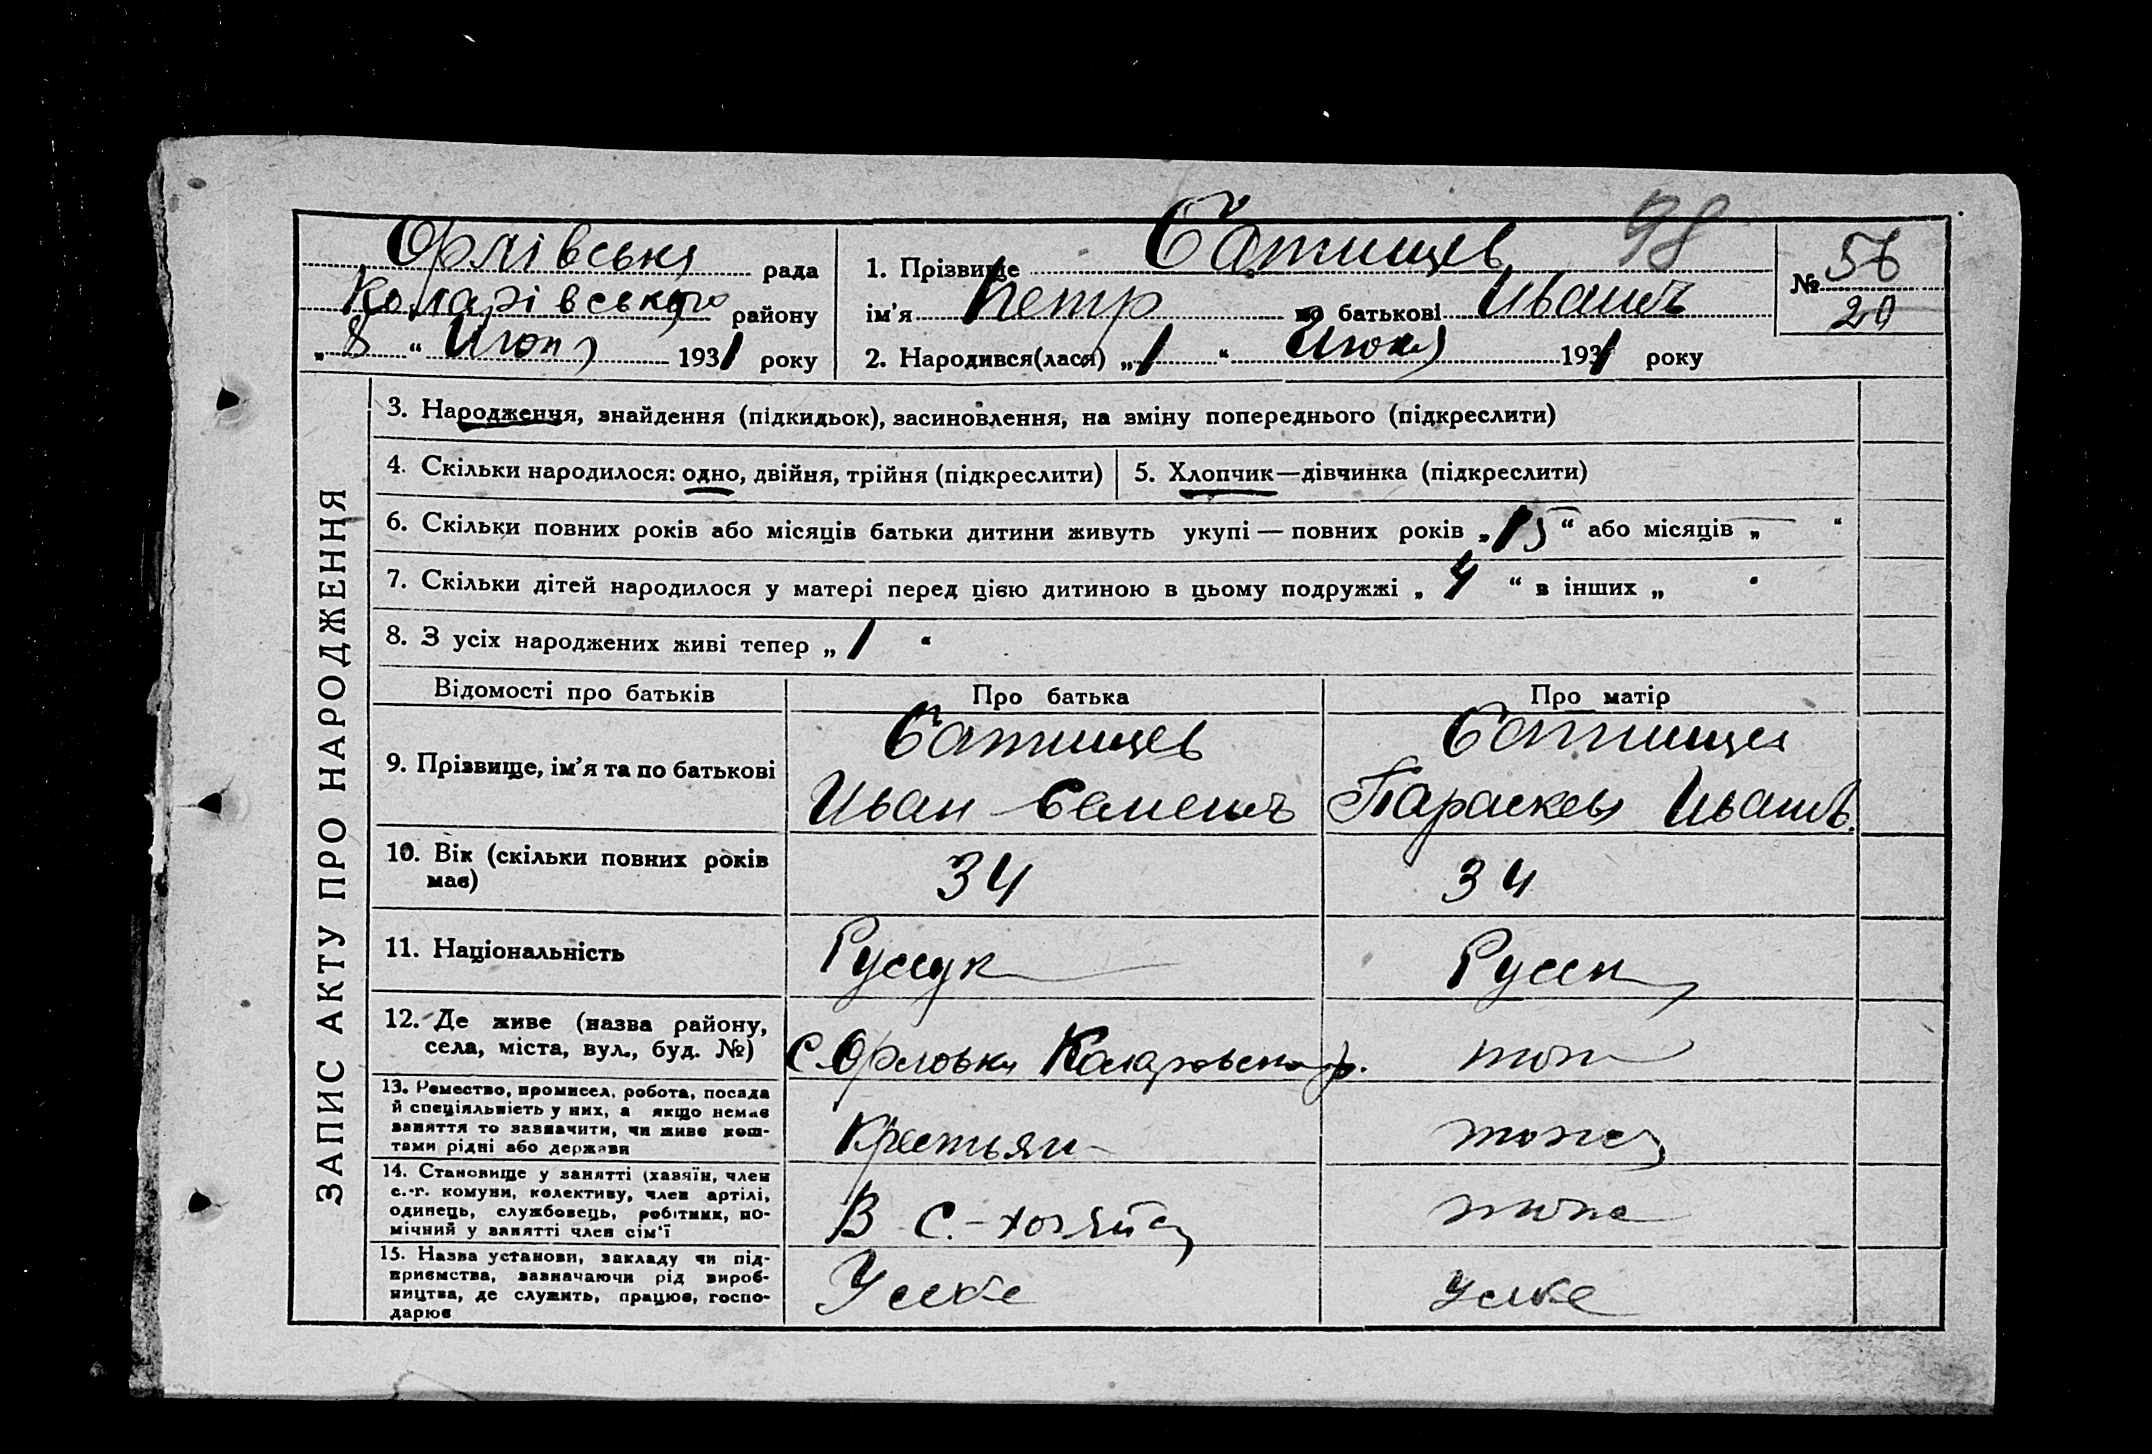 98
Орлівська рада
Коларівського району
„8“ Июня 1931 року
1. Прізвище Сатищев
ім’я Петр по батькові Иванов
2. Народився(лася) „1“ Июня 1931 року
№ 56
20
ЗАПИС АКТУ ПРО НАРОДЖЕННЯ
3. Народження, знайдення (підкидьок), засиновлення, на зміну попереднього (підкреслити)
4. Скільки народилося: одно, двійня, трійня (підкреслити)
5. Хлопчик—дівчинка (підкреслити)
6. Скільки повних років або місяців батьки дитини живуть укупі — повних років „15“ або місяців „—“
7. Скільки дітей народилося у матері перед цією дитиною в цьому подружжі „4“ в інших „ “
8. З усіх народжених живі тепер „1“
Відомості про батьків
Про батька
Про матір
9. Прізвище, ім’я та по батькові
Сатищев
Иван Семенов
Сатищева
Параскева Иванов.
10. Вік (скільки повних років
має)
34
34
11. Національність
Русск
12. Де живе (назва району,
села, міста, вул., буд. №)
С. Орловка Коларовск р.
тож
13. Ремество, промисел, робота, посада
й спеціяльність у них, а якщо немає
заняття то зазначити, чи живе кош-
тами рідні або держави
Крестьян
тоже
14. Становище у занятті (хазяїн, член
с.-г. комуни, колективу, член артілі,
одинець, службовець, робітник, по-
мічний у занятті член сім’ї
В С.-
тоже
15. Назва установи, закладу чи під-
приємства, зазначаючи рід вироб-
ництва, де служить, працює, госпо-
дарює
У себе
У себе